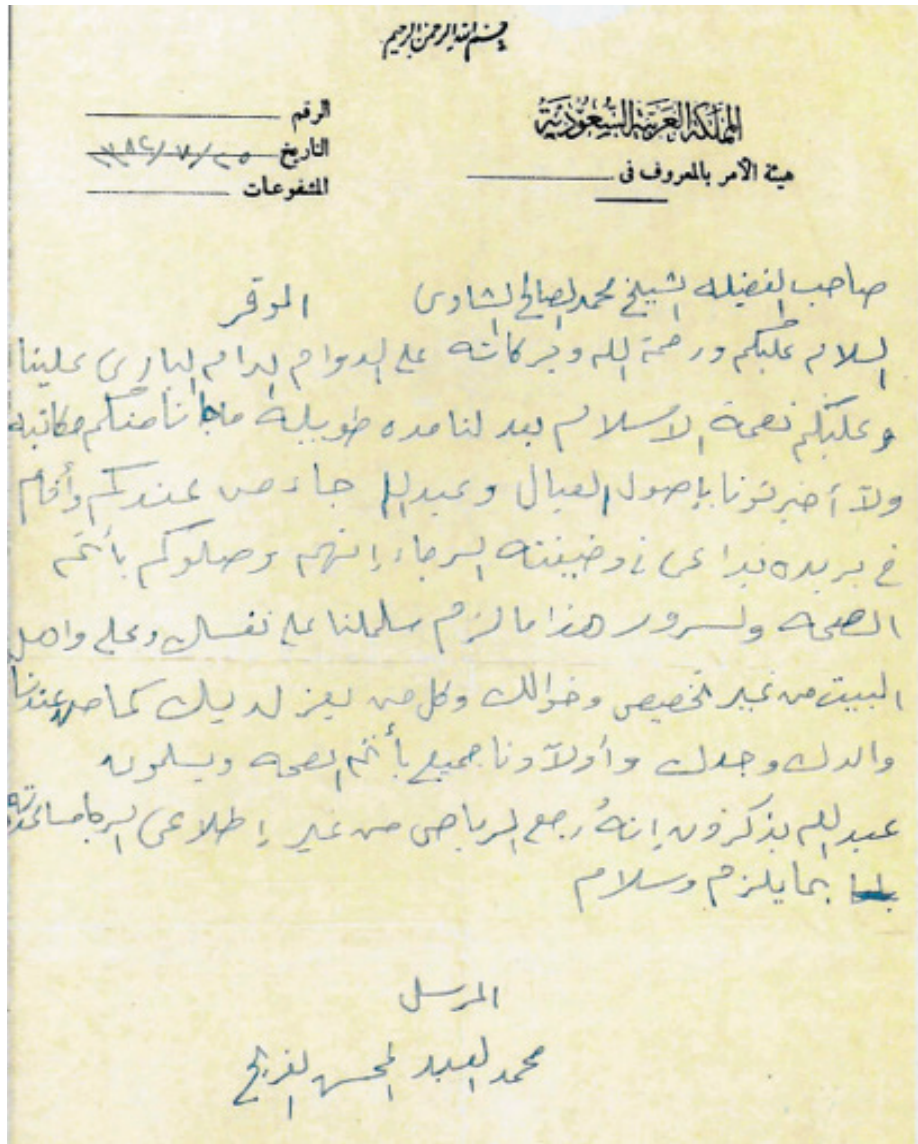 بسم الله الرحمن الرحيم
المملكة العربية السعودية
هيئة الأمر بالمعروف فى
الرقم
التاريخ ١٣٨٢/٧/٢٥
المشفوعات
صاحب الفضيله الشيخ محمد الصالح الشاوى الموقر
السلام عليكم ورحمة الله وبركاته على الدوام البارى علينا
وعليكم نعمة الاسلام بعد لنا مده طويله ما جانا منكم مكاتبه
ولا أخبرتونا بإصول العيال وعبدالله جاء من عندكم وأقام
في بريده في وضيفته الرجاء إنهم وصلوكم بأتم
الصحه ولسرور هذا مالزم سلملنا على نفسك وعلى واهل
البيت من غير تخصيص وخوالك وكل من يعز لديك كما من عندنا
والدك وجدك وأولآدنا جميع بأتم لصحه ويسلمون
عبدالله يذكرون إنهُ رجع الرياض من غير إطلاعى الرجا مساعدته
بما يلزم وسلام
المرسل
محمد العبد المحسن الفريح